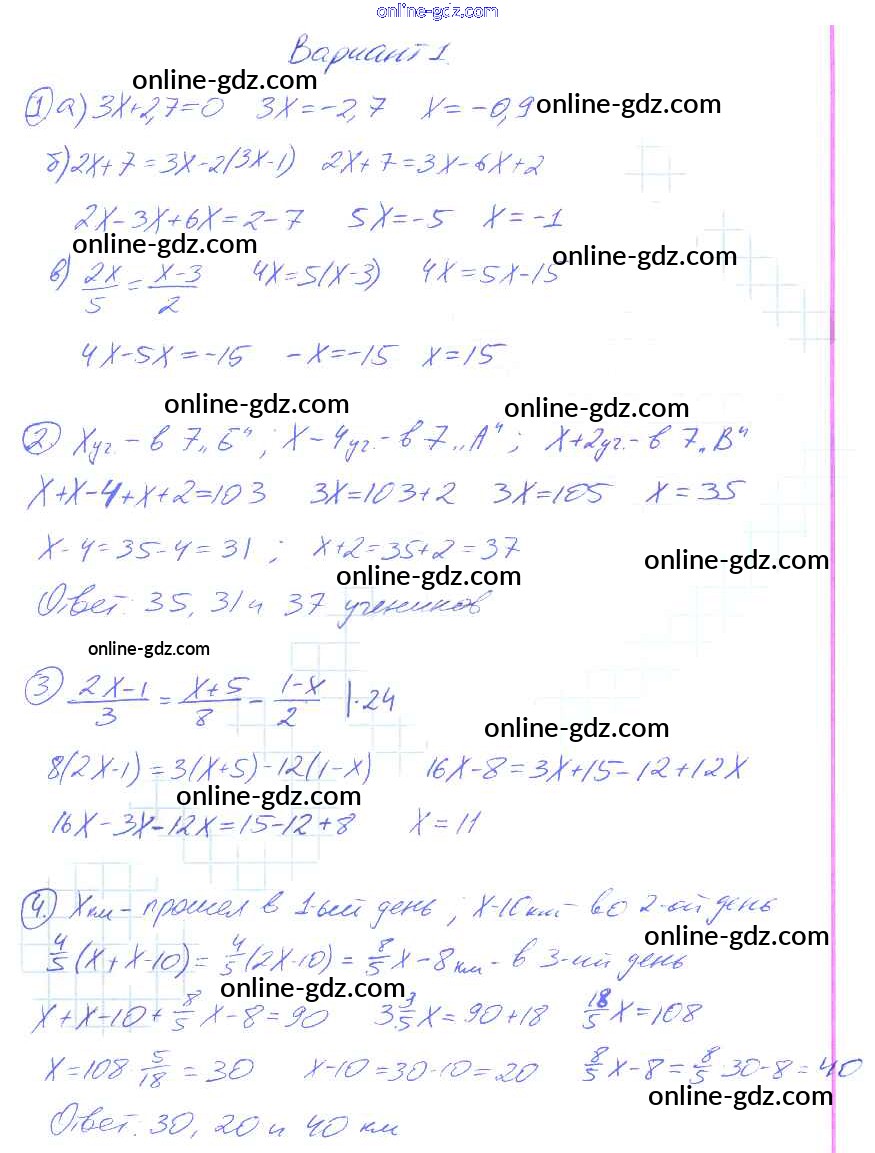 online-gdz.com
Вариант 1
online-gdz.com
1 а) 3х+2,7=0 3х=-2,7 х=-0,9 online-gdz.com
б) 2х+7=3х-2(3х-1) 2х+7=3х-6х+2
2х-3х+6х=2-7 5х=-5 х=-1
online-gdz.com online-gdz.com
в) 2х/5=х-3/2 4х=5(х-3) 4х=5х-15
4х-5х=-15 -х=-15 х=15
online-gdz.com online-gdz.com
2 Хуг.-в 7„Б“; Х-4уг.-в 7„А“; Х+2уг.-в 7„В“
х+х-4+х+2=103 3х=103+2 3х=105 х=35
х-4=35-4=31; х+2=35+2=37
online-gdz.com
online-gdz.com
Ответ: 35, 31 и 37 учеников
online-gdz.com
3 2х-1/3=х+5/8-1-х/2 |·24
online-gdz.com
8(2х-1)=3(х+5)-12(1-х) 16х-8=3х+15-12+12х
online-gdz.com
16х-3х-12х=15-12+8 х=11
4. Хкм-прошел в 1-ый день; х-10км-во 2-ой день
online-gdz.com
4/5(х+х-10)=4/5(2х-10)=8/5х-8км-в 3-ий день
online-gdz.com
х+х-10+8/5х-8=90 3 3/5х=90+18 18/5х=108
х=108·5/18=30 х-10=30-10=20 8/5х-8=8/5·30-8=40
online-gdz.com
Ответ: 30, 20 и 40 км